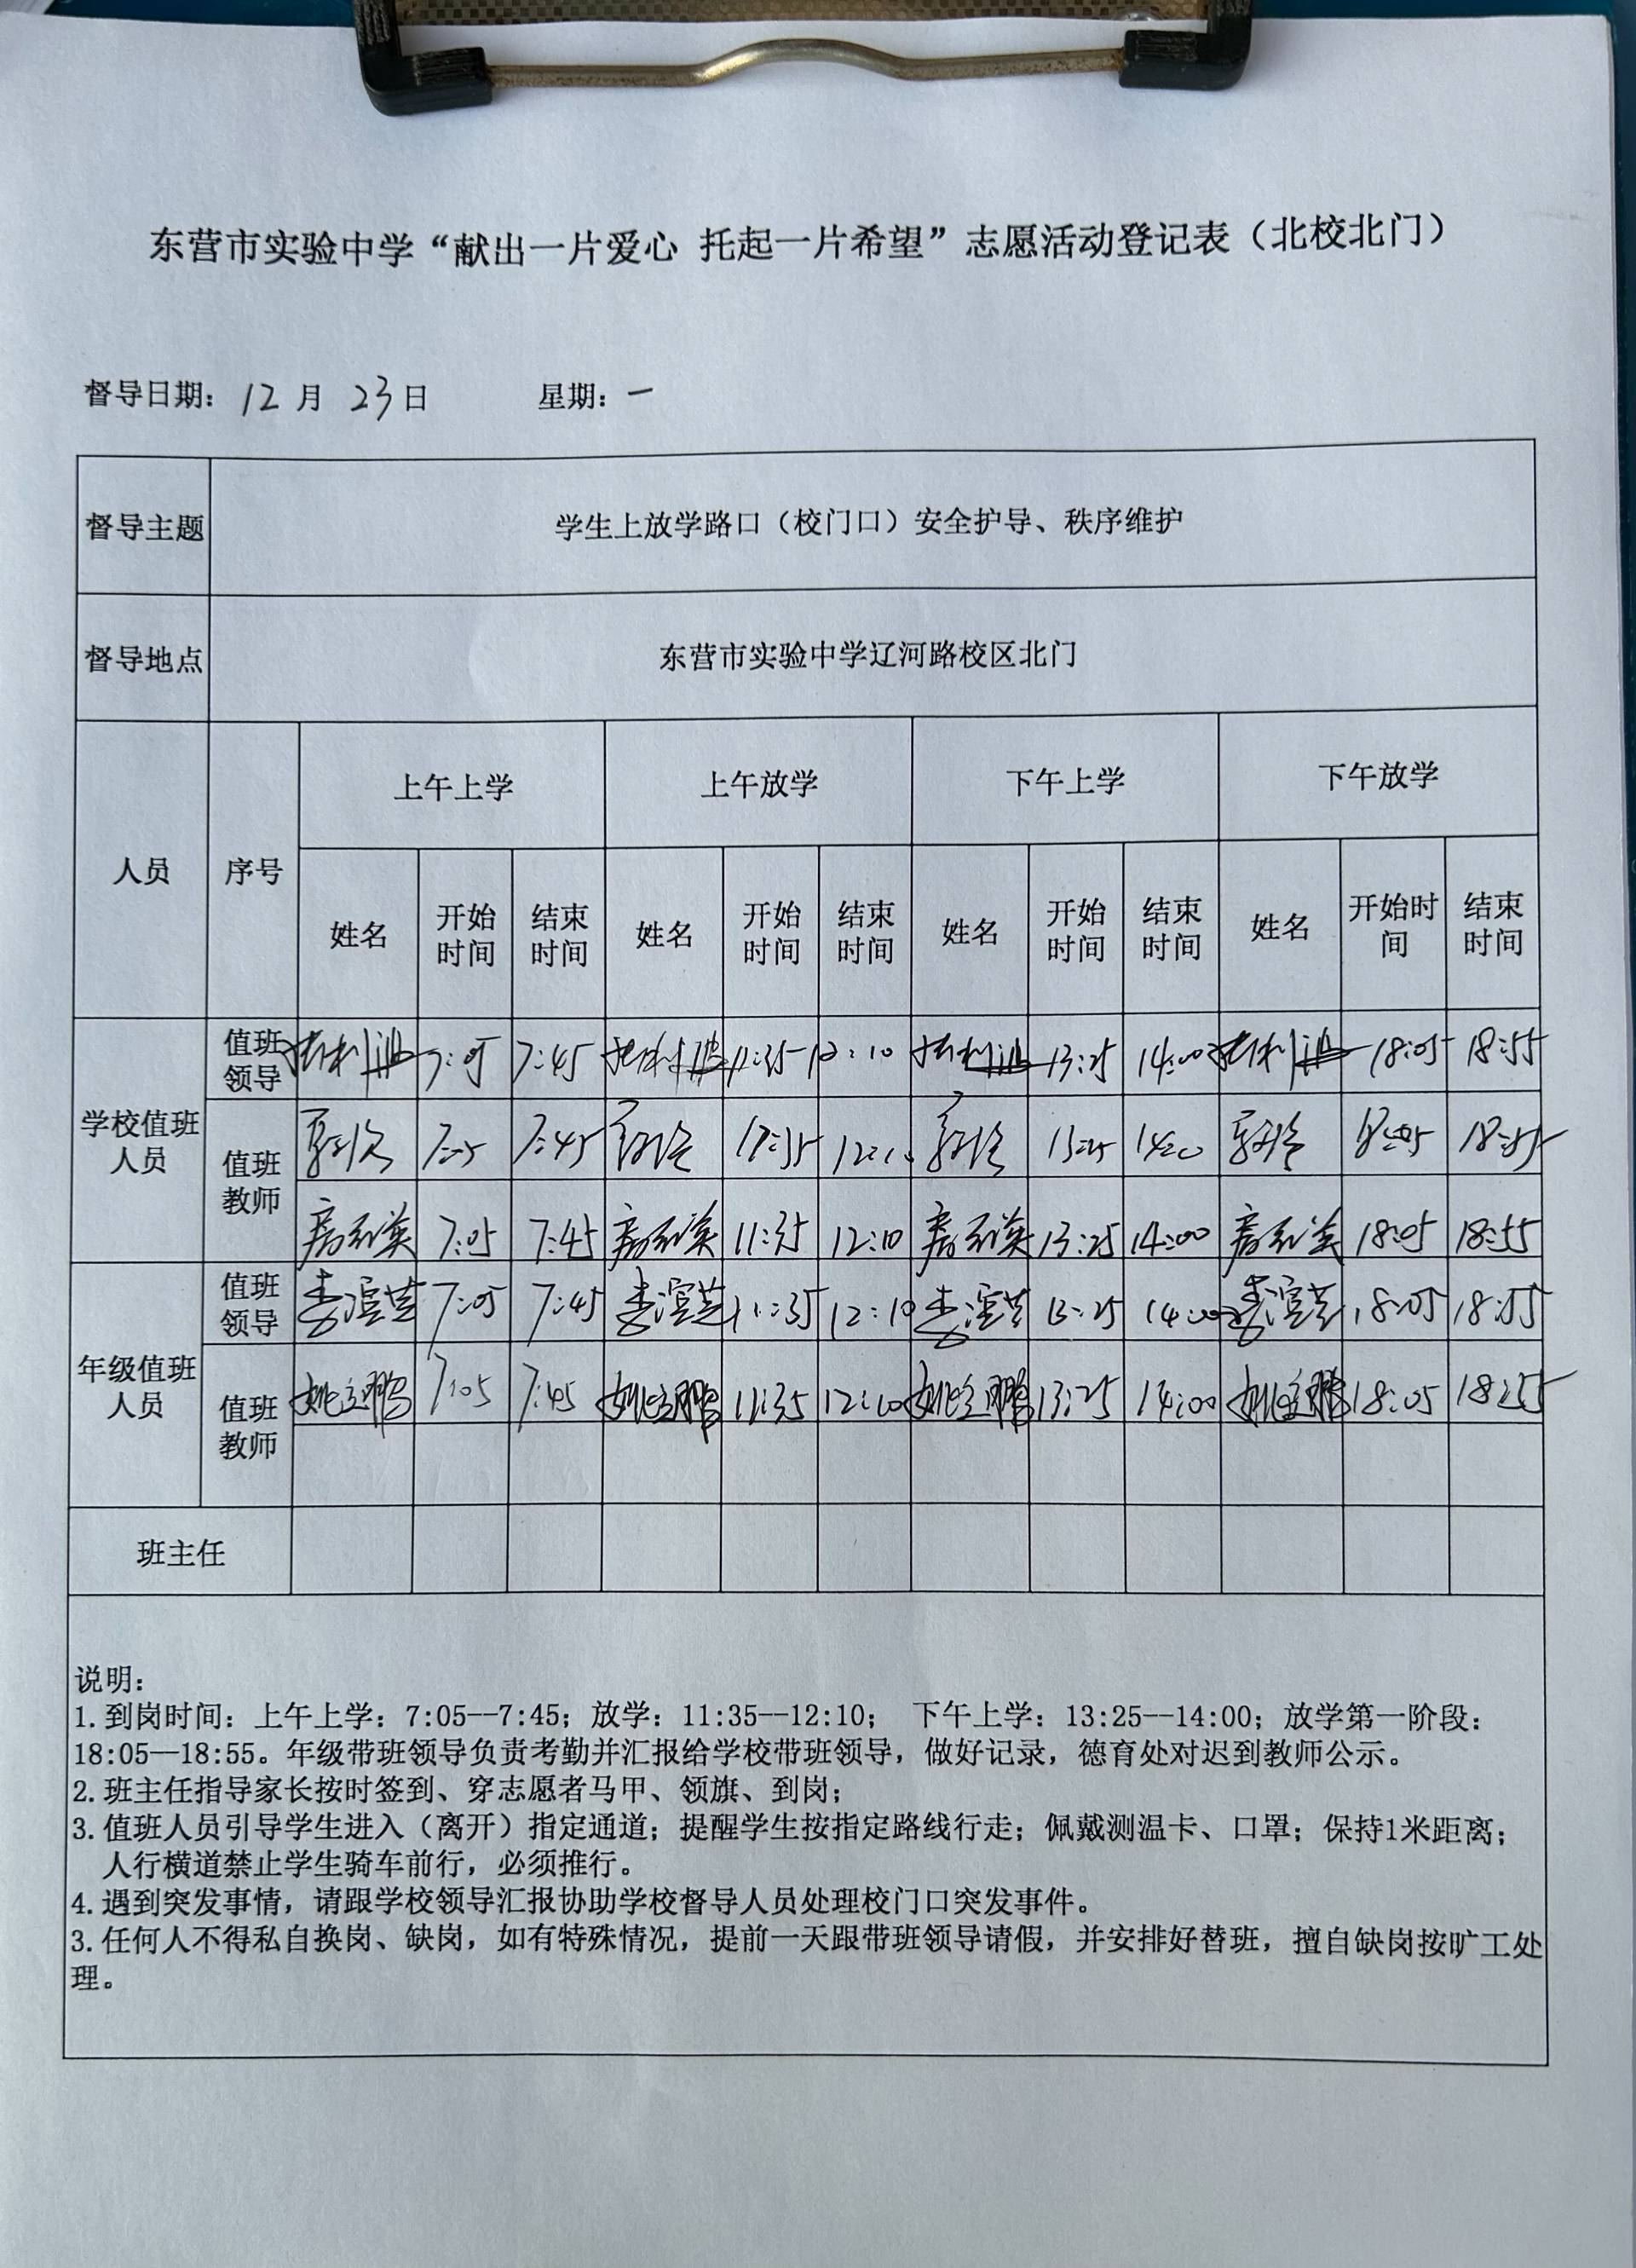 东营市实验中学“献出一片爱心 托起一片希望”志愿活动登记表（北校北门）
督导日期：12月 23日 星期：一
督导主题 学生上放学路口（校门口）安全护导、秩序维护
督导地点 东营市实验中学辽河路校区北门
人员 序号 上午上学 上午放学 下午上学 下午放学
姓名 开始时间 结束时间 姓名 开始时间 结束时间 姓名 开始时间 结束时间 姓名 开始时间 结束时间
学校值班人员 值班领导 7:05 7:45 11:35 12:10 13:25 14:00 18:05 18:55
值班教师 7:05 7:45 12:10 13:25 14:00 18:55
7:05 7:45 11:35 12:10 13:25 14:00 18:05 18:55
年级值班人员 值班领导 7:05 7:45 11:35 12:10 13:25 14:00 18:05 18:55
值班教师 姚立鹏 7:05 7:45 姚立鹏 11:35 12:10 姚立鹏 13:25 14:00 姚立鹏 18:05 18:55
班主任
说明：
1.到岗时间：上午上学：7:05--7:45；放学：11:35--12:10； 下午上学：13:25--14:00；放学第一阶段：
18:05—18:55。年级带班领导负责考勤并汇报给学校带班领导，做好记录，德育处对迟到教师公示。
2.班主任指导家长按时签到、穿志愿者马甲、领旗、到岗；
3.值班人员引导学生进入（离开）指定通道；提醒学生按指定路线行走；佩戴测温卡、口罩；保持1米距离；
人行横道禁止学生骑车前行，必须推行。
4.遇到突发事情，请跟学校领导汇报协助学校督导人员处理校门口突发事件。
3.任何人不得私自换岗、缺岗，如有特殊情况，提前一天跟带班领导请假，并安排好替班，擅自缺岗按旷工处
理。